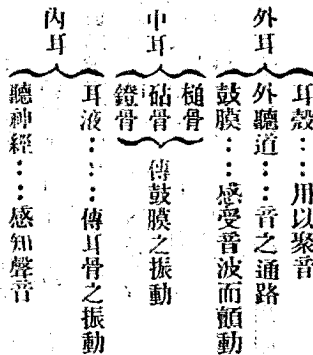 外耳
耳殼……用以聚音
外聽道……音之通路
鼓膜……感受音波而顫動
中耳
槌骨
砧骨
鐙骨
傳鼓膜之振動
內耳
耳液……傳耳骨之振動
聽神經……感知聲音